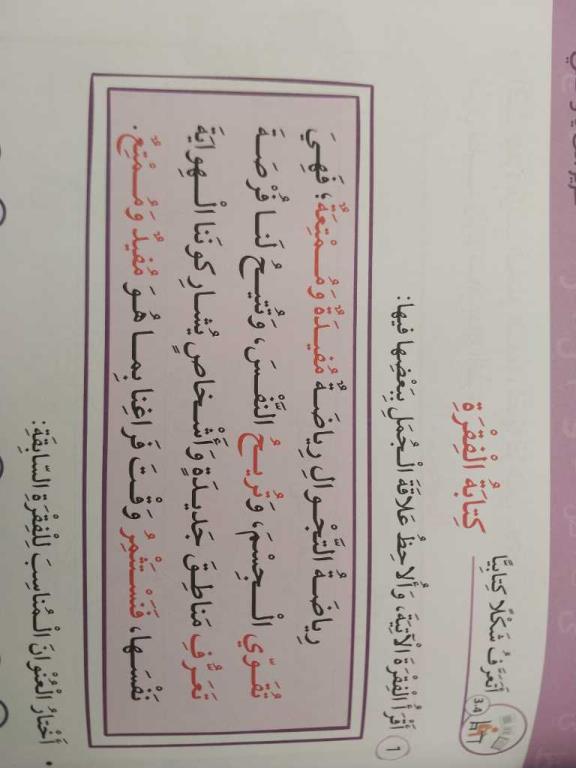 3.4
أَتَعَرَّفُ شَكْلًا كِتابِيًّا
كِتابَةُ الْفِقْرَةِ
1 أَقْرَأُ الْفِقْرَةَ الْآتِيَةَ، وَأُلاحِظُ عَلاقَةَ الْجُمَلِ بِبَعْضِها فيها:
رِياضَةُ التَّجْوالِ رِياضَةٌ مُفيدَةٌ وَمُمْتِعَةٌ؛ فَهِيَ
تُقَوّي الْجِسْمَ، وَتُريحُ النَّفْسَ، وَتُتيحُ لَنا فُرْصَةَ
تَعَرُّفِ مَناطِقَ جَديدَةٍ وَأَشْخاصٍ يُشارِكونَنا الْهِوايَةَ
نَفْسَها، فَنَسْتَثْمِرُ وَقْتَ فَراغِنا بِما هُوَ مُفيدٌ وَمُمْتِعٌ.
• أَخْتارُ الْعُنْوانَ الْمُناسِبَ لِلْفِقْرَةِ السّابِقَةِ: